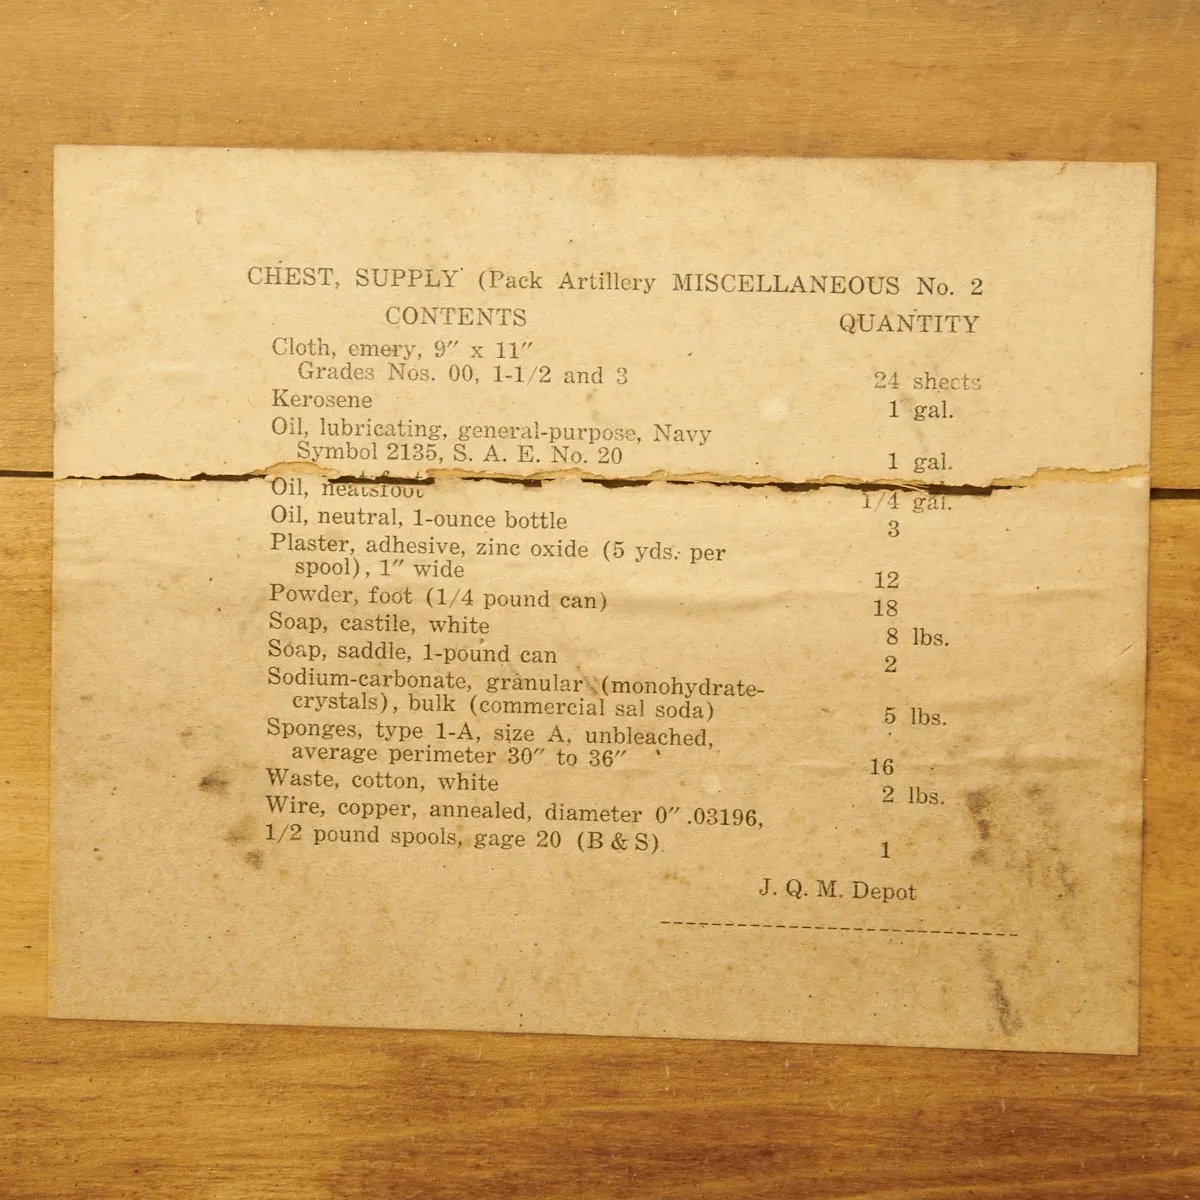 CHEST, SUPPLY (Pack Artillery MISCELLANEOUS No. 2
CONTENTS QUANTITY
Cloth, emery, 9″ x 11″
Grades Nos. 00, 1-1/2 and 3 24 sheets
Kerosene 1 gal.
Oil, lubricating, general-purpose, Navy
Symbol 2135, S. A. E. No. 20 1 gal.
Oil, neatsfoot 1/4 gal.
Oil, neutral, 1-ounce bottle 3
Plaster, adhesive, zinc oxide (5 yds. per
spool), 1″ wide 12
Powder, foot (1/4 pound can) 18
Soap, castile, white 8 lbs.
Soap, saddle, 1-pound can 2
Sodium-carbonate, granular (monohydrate-
crystals), bulk (commercial sal soda) 5 lbs.
Sponges, type 1-A, size A, unbleached,
average perimeter 30″ to 36″ 16
Waste, cotton, white 2 lbs.
Wire, copper, annealed, diameter 0″ .03196,
1/2 pound spools, gage 20 (B & S) 1
J. Q. M. Depot